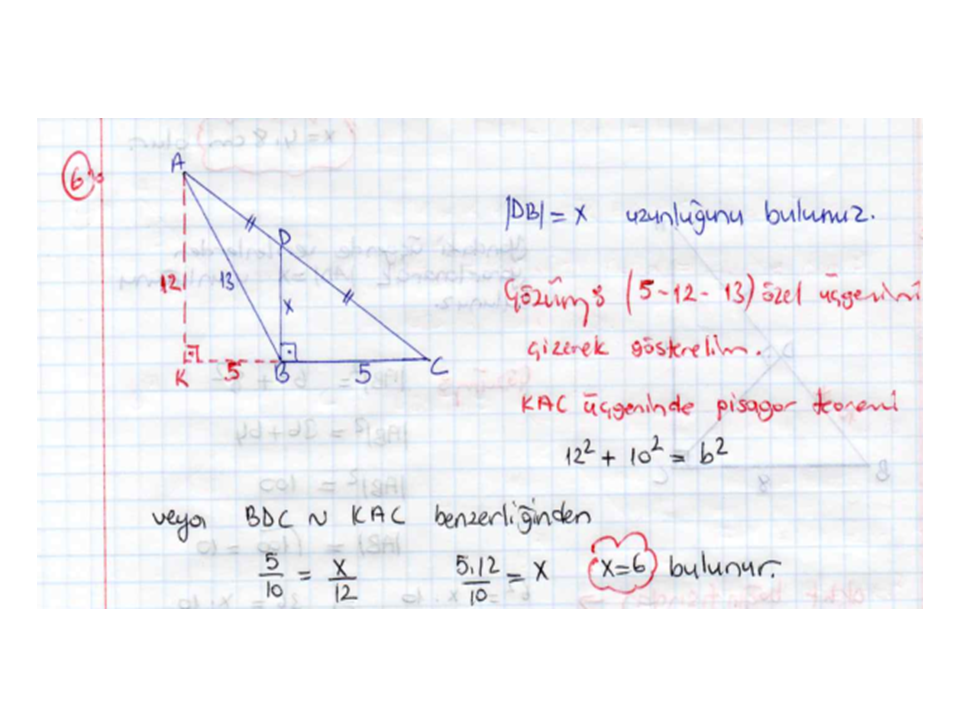 6
A
D
12
13
x
K
5
B
5
C
|DB| = x uzunluğunu bulunuz.
Çözüm: (5-12-13) özel üçgenini
çizerek gösterelim.
KAC üçgeninde pisagor teoremi
12² + 10² = b²
veya BDC ~ KAC benzerliğinden
5/10 = x/12 5.12/10 = x x=6 bulunur.